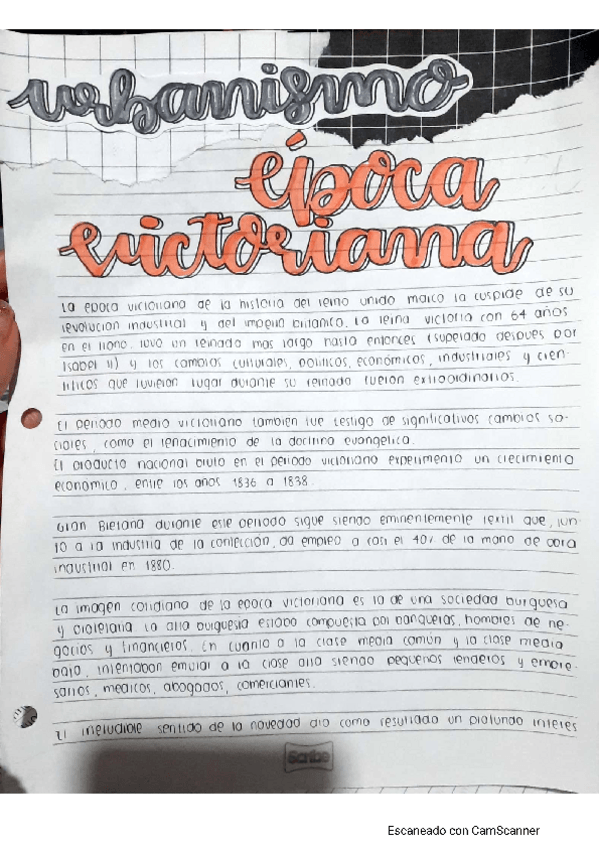 urbanismo
época
victoriana
La epoca victoriana de la historia del reino unido marco la cuspide de su
revolucion industrial y del imperio britanico. La reina victoria con 64 años
en el trono, tuvo un reinado mas largo hasta entonces (superado despues por
Isabel II) y los cambios culturales, politicos, económicos, industriales y cien-
tificos que tuvieron lugar durante su reinado fueron extraordinarios.
El periodo medio victoriano tambien fue testigo de significativos cambios so-
ciales, como el renacimiento de la doctrina evangelica.
El producto nacional bruto en el periodo victoriano experimento un crecimiento
economico, entre los años 1836 a 1838.
Gran Bretana durante este periodo sigue siendo eminentemente textil que, jun-
to a la industria de la confeccion, da empleo a casi el 40% de la mano de obra
industrial en 1880.
La imagen cotidiana de la epoca victoriana es la de una sociedad burguesa
y proletaria. La alta burguesia estaba compuesta por banqueros, hombres de ne-
gocios y financieros. En cuanto a la clase media común y la clase media
baja, intentaban emular a la clase alta siendo pequeños tenderos y empre-
sarios, medicos, abogados, comerciantes.
El ineludible sentido de la novedad dio como resultado un profundo interes
Scribe
Escaneado con CamScanner